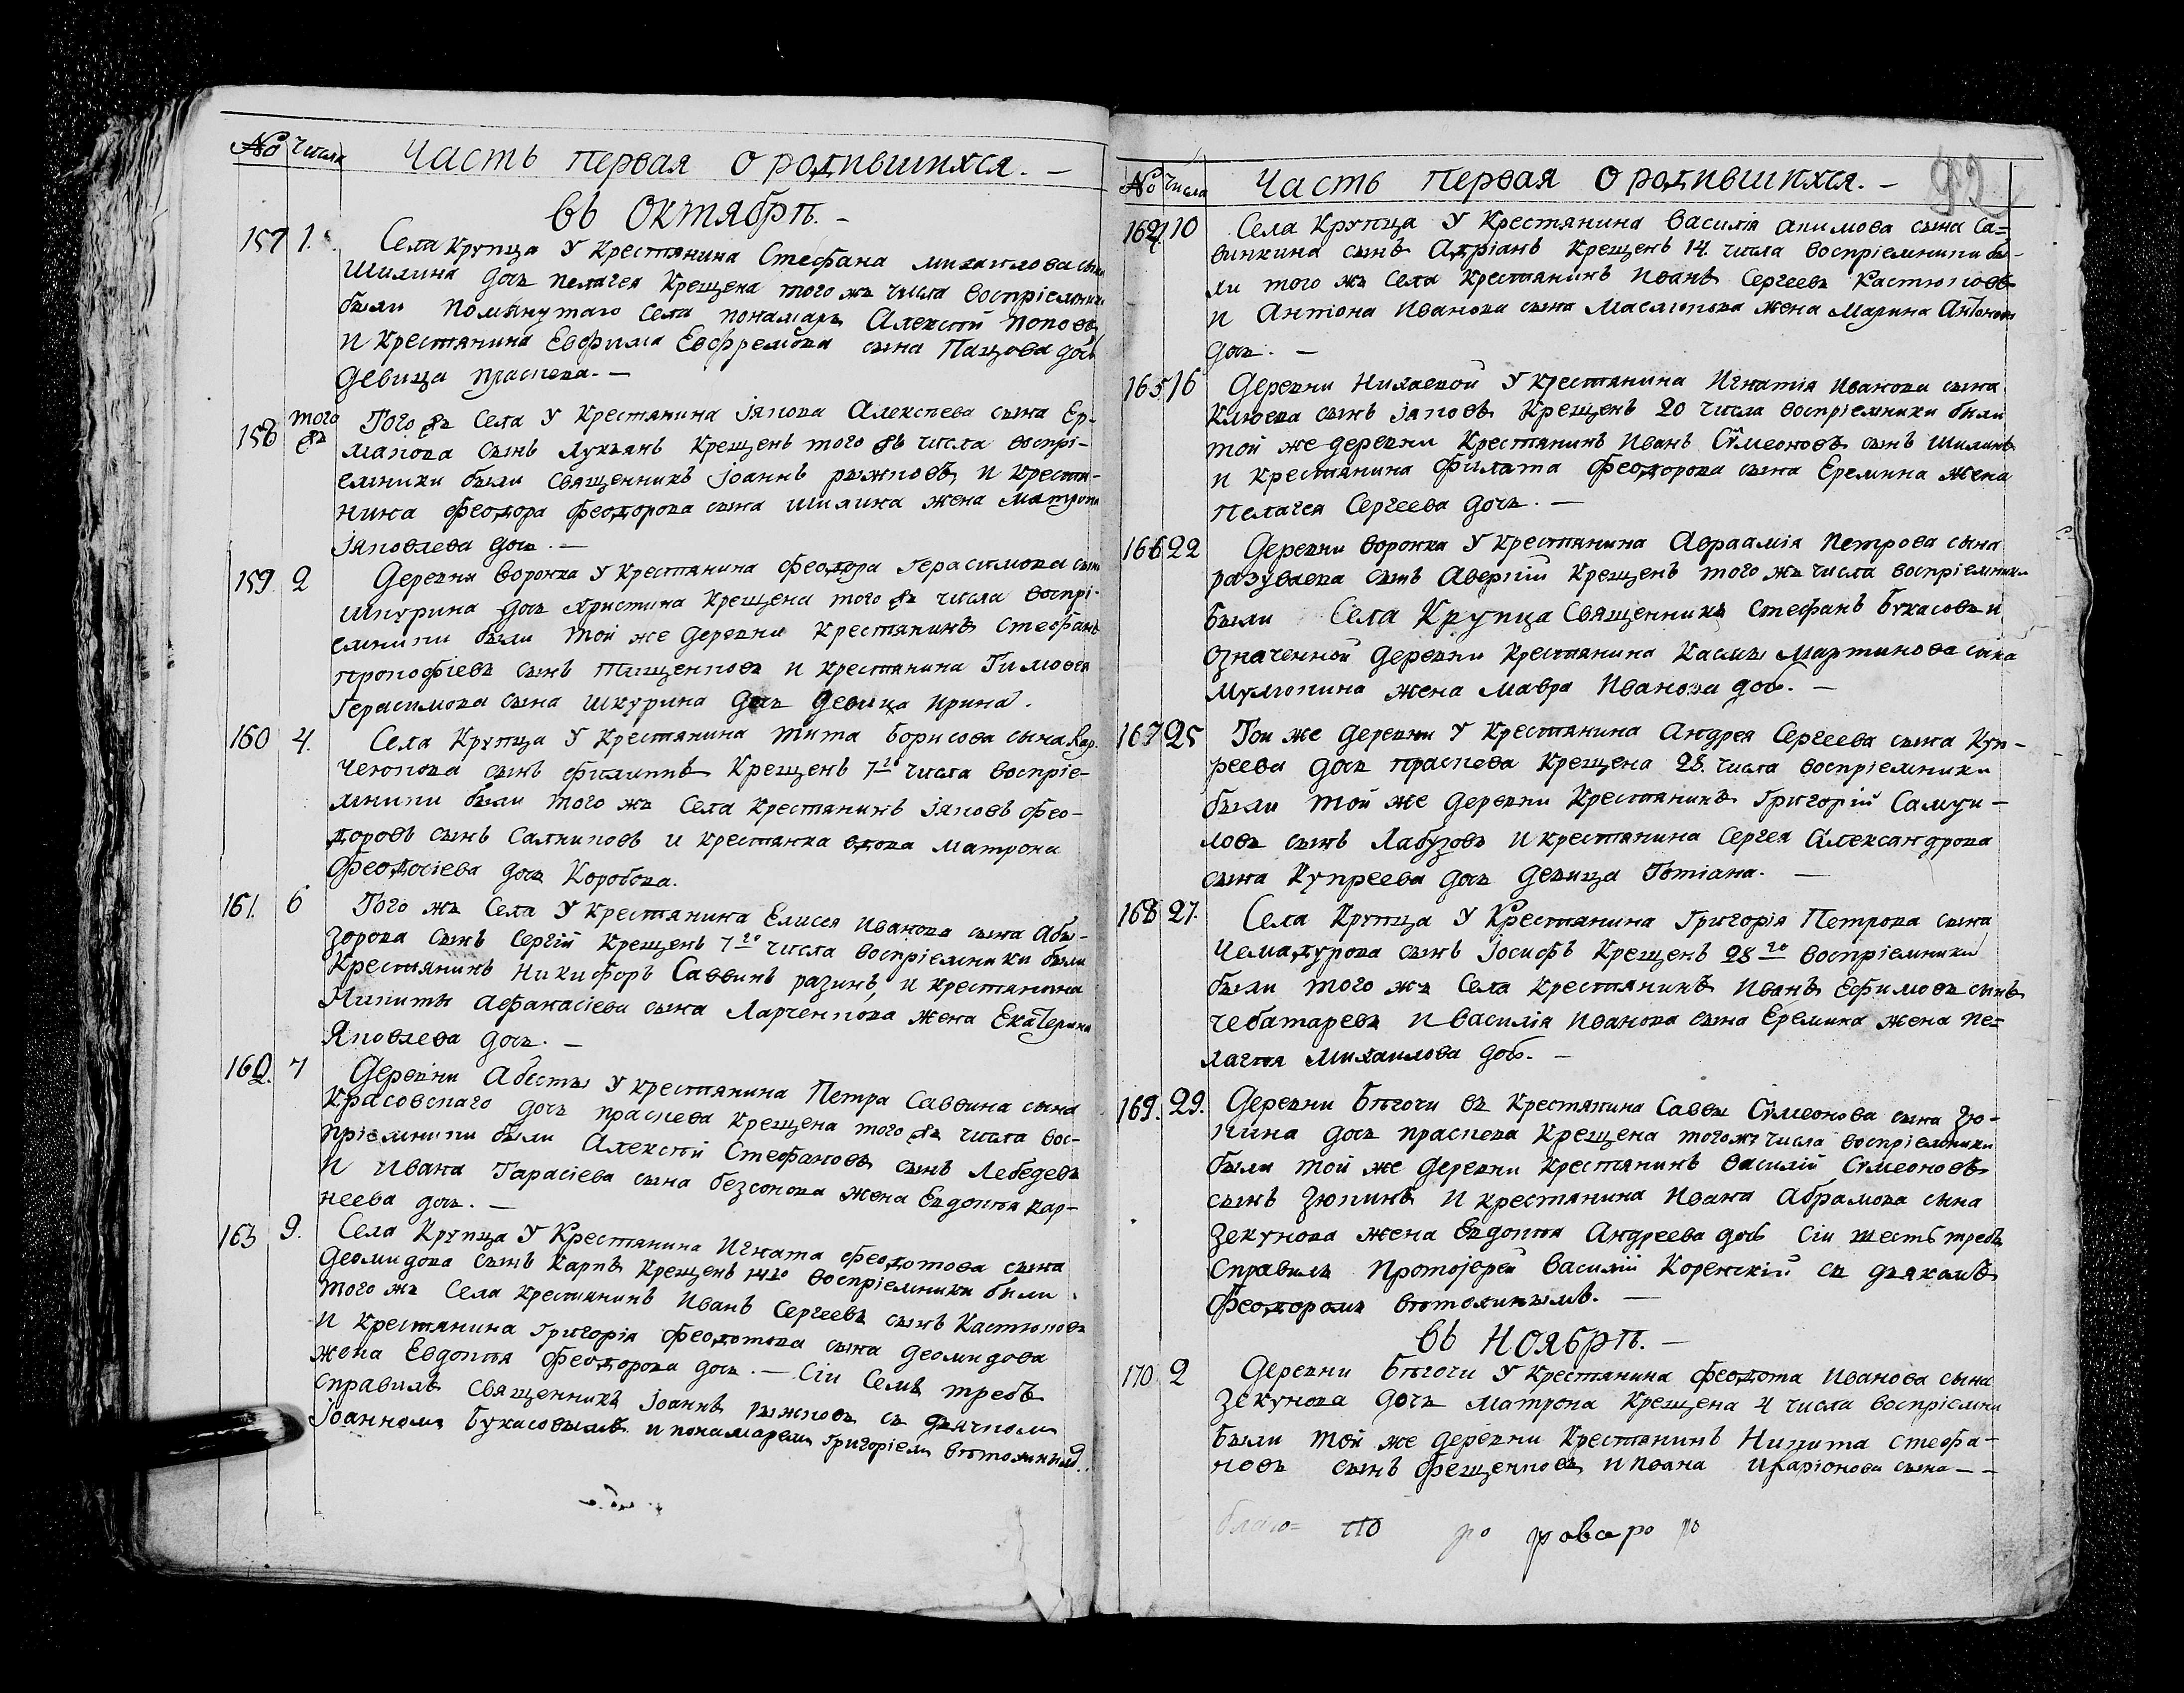 № числа Часть первая о родившихся. –
въ Октябрѣ. –
157 1. Села Крупца у Крестянина Стефана михаилова сына
Шилина дочь пелагея Крещена того жъ числа воспріемники
были помянутаго села понамарь Алексѣй поповъ
и Крестянина Евфима Евфремова сына Пацова дочь
девица праскева. –
158 того жъ Того жъ Села у Крестянина іякова Алексѣева сына Ер-
макова сынъ Лукьянъ Крещенъ того жъ числа воспрі-
емники были священникъ іоаннъ рыжковъ и крестя-
нина феодора феодорова сына шилина жена матрона
іяковлева дочь. –
159 2 Деревни воронка у крестянина феодора герасимова сына
шкурина дочь христина крещена того жъ числа воспрі-
емники были той же деревни крестянинъ стефанъ
прокофіевъ сынъ тищенковъ и крестянина Тимофея
герасимова сына шкурина дочь девица ирина.
160 4. Села Крупца у Крестянина тита борисова сына Кар-
чеюкова сынъ филиппъ Крещенъ 7го числа воспріе-
мники были того жъ села крестянинъ іяковъ фео-
доровъ сынъ Салниковъ и крестянка вдова матрона
феодосіева дочь Коробова.
161. 6 Того жъ Села у крестянина Елисея иванова сына Абы-
зорова сынъ Сергій Крещенъ 7го числа воспріемники были
Крестянинъ никифоръ Саввинъ разинъ, и крестянина
Никиты афанасіева сына Ларченкова жена Екатерина
Яковлева дочь. –
162. 7 Деревни Абесты у крестянина Петра Саввина сына
Красовскаго дочь праскева крещена того жъ числа вос-
пріемники были Алексѣй Стефановъ сынъ Лебедевъ
и Ивана Тарасіева сына безсонова жена Евдокѣя кар-
неева дочь. –
163 9. Села Крупца у Крестянина Игната феодотова сына
Деомидова сынъ Карпъ Крещенъ 14го воспріемники были
того жъ села крестянинъ Иванъ Сергеевъ сынъ Кастюковъ
и крестянина григорія феодотова сына деомидова
жена Евдокѣя феодорова дочь. – Сіи Семъ требъ
справилъ священникъ іоаннъ рыжковъ съ дьячкомъ
іоанномъ букасовымъ и понамаремъ григоріемъ вѣтохинымъ.
№ числа Часть первая о родившихся. – 92
164 10 Села Крупца у Крестянина василія акимова сына Са=
винкина сынъ Адріанъ Крещенъ 14. числа воспріемники бы-
ли того жъ села крестянинъ иванъ Сергеевъ Кастюковъ
и Антiона иванова сына маслюкова жена марина Антонова
дочь. –
165 16 Деревни Нихаевой у крестянина Игнатія иванова сына
клюева сынъ іяковъ Крещенъ 20 числа воспріемники были
той же деревни крестянинъ иванъ Сѵмеоновъ сынъ шилинъ
и крестянина филата феодорова сына Еремина жена
пелагея Сергеева дочь. –
166 22 Деревни воронка у крестянина Авраамія петрова сына
разуваева сынъ Аверкій крещенъ того жъ числа воспріемники
были Села Крупца священникъ стефанъ букасовъ и
означенной деревни крестянина Касмы мартинова сына
мулюкина жена мавра Иванова дочь. –
167 25 Той же деревни у крестянина андрея Сергеева сына Куп-
реева дочь праскева крещена 28. числа воспріемники
были той же деревни крестянинъ григорій Самуи-
ловъ сынъ Лабузовъ и крестянина сергея Александрова
сына Купреева дочь девица Татіана. –
168 27. Села Крупца у Крестянина григорія Петрова сына
чемадурова сынъ іосифъ Крещенъ 28го воспріемники
были того жъ села крестянинъ иванъ Ефимовъ сынъ
чебатаревъ и василія иванова сына Еремина жена пе=
лагѣя михаилова дочь. –
169. 29. Деревни Бѣгочи въ крестянина Саввы Сѵмеонова сына зю-
кина дочь праскева крещена того жъ числа воспріемники
были той же деревни крестянинъ василій Сѵмеоновъ
сынъ зюкинъ и крестянина ивана абрамова сына
зекунова жена Евдокѣя Андреева дочь Сіи шесть требъ
справилъ протоіерей василій Коренскій съ дьякомъ
феодоромъ вѣтохинымъ. –
въ Ноябрѣ. –
170 2 Деревни Бѣгочи у крестянина феодота иванова сына
зекунова дочь матрона крещена 4 числа воспріемни
были той же деревни крестянинъ Никита стефа-
новъ сынъ фещенковъ и ивана иларіонова сына – –
благо= по ро роваро ро